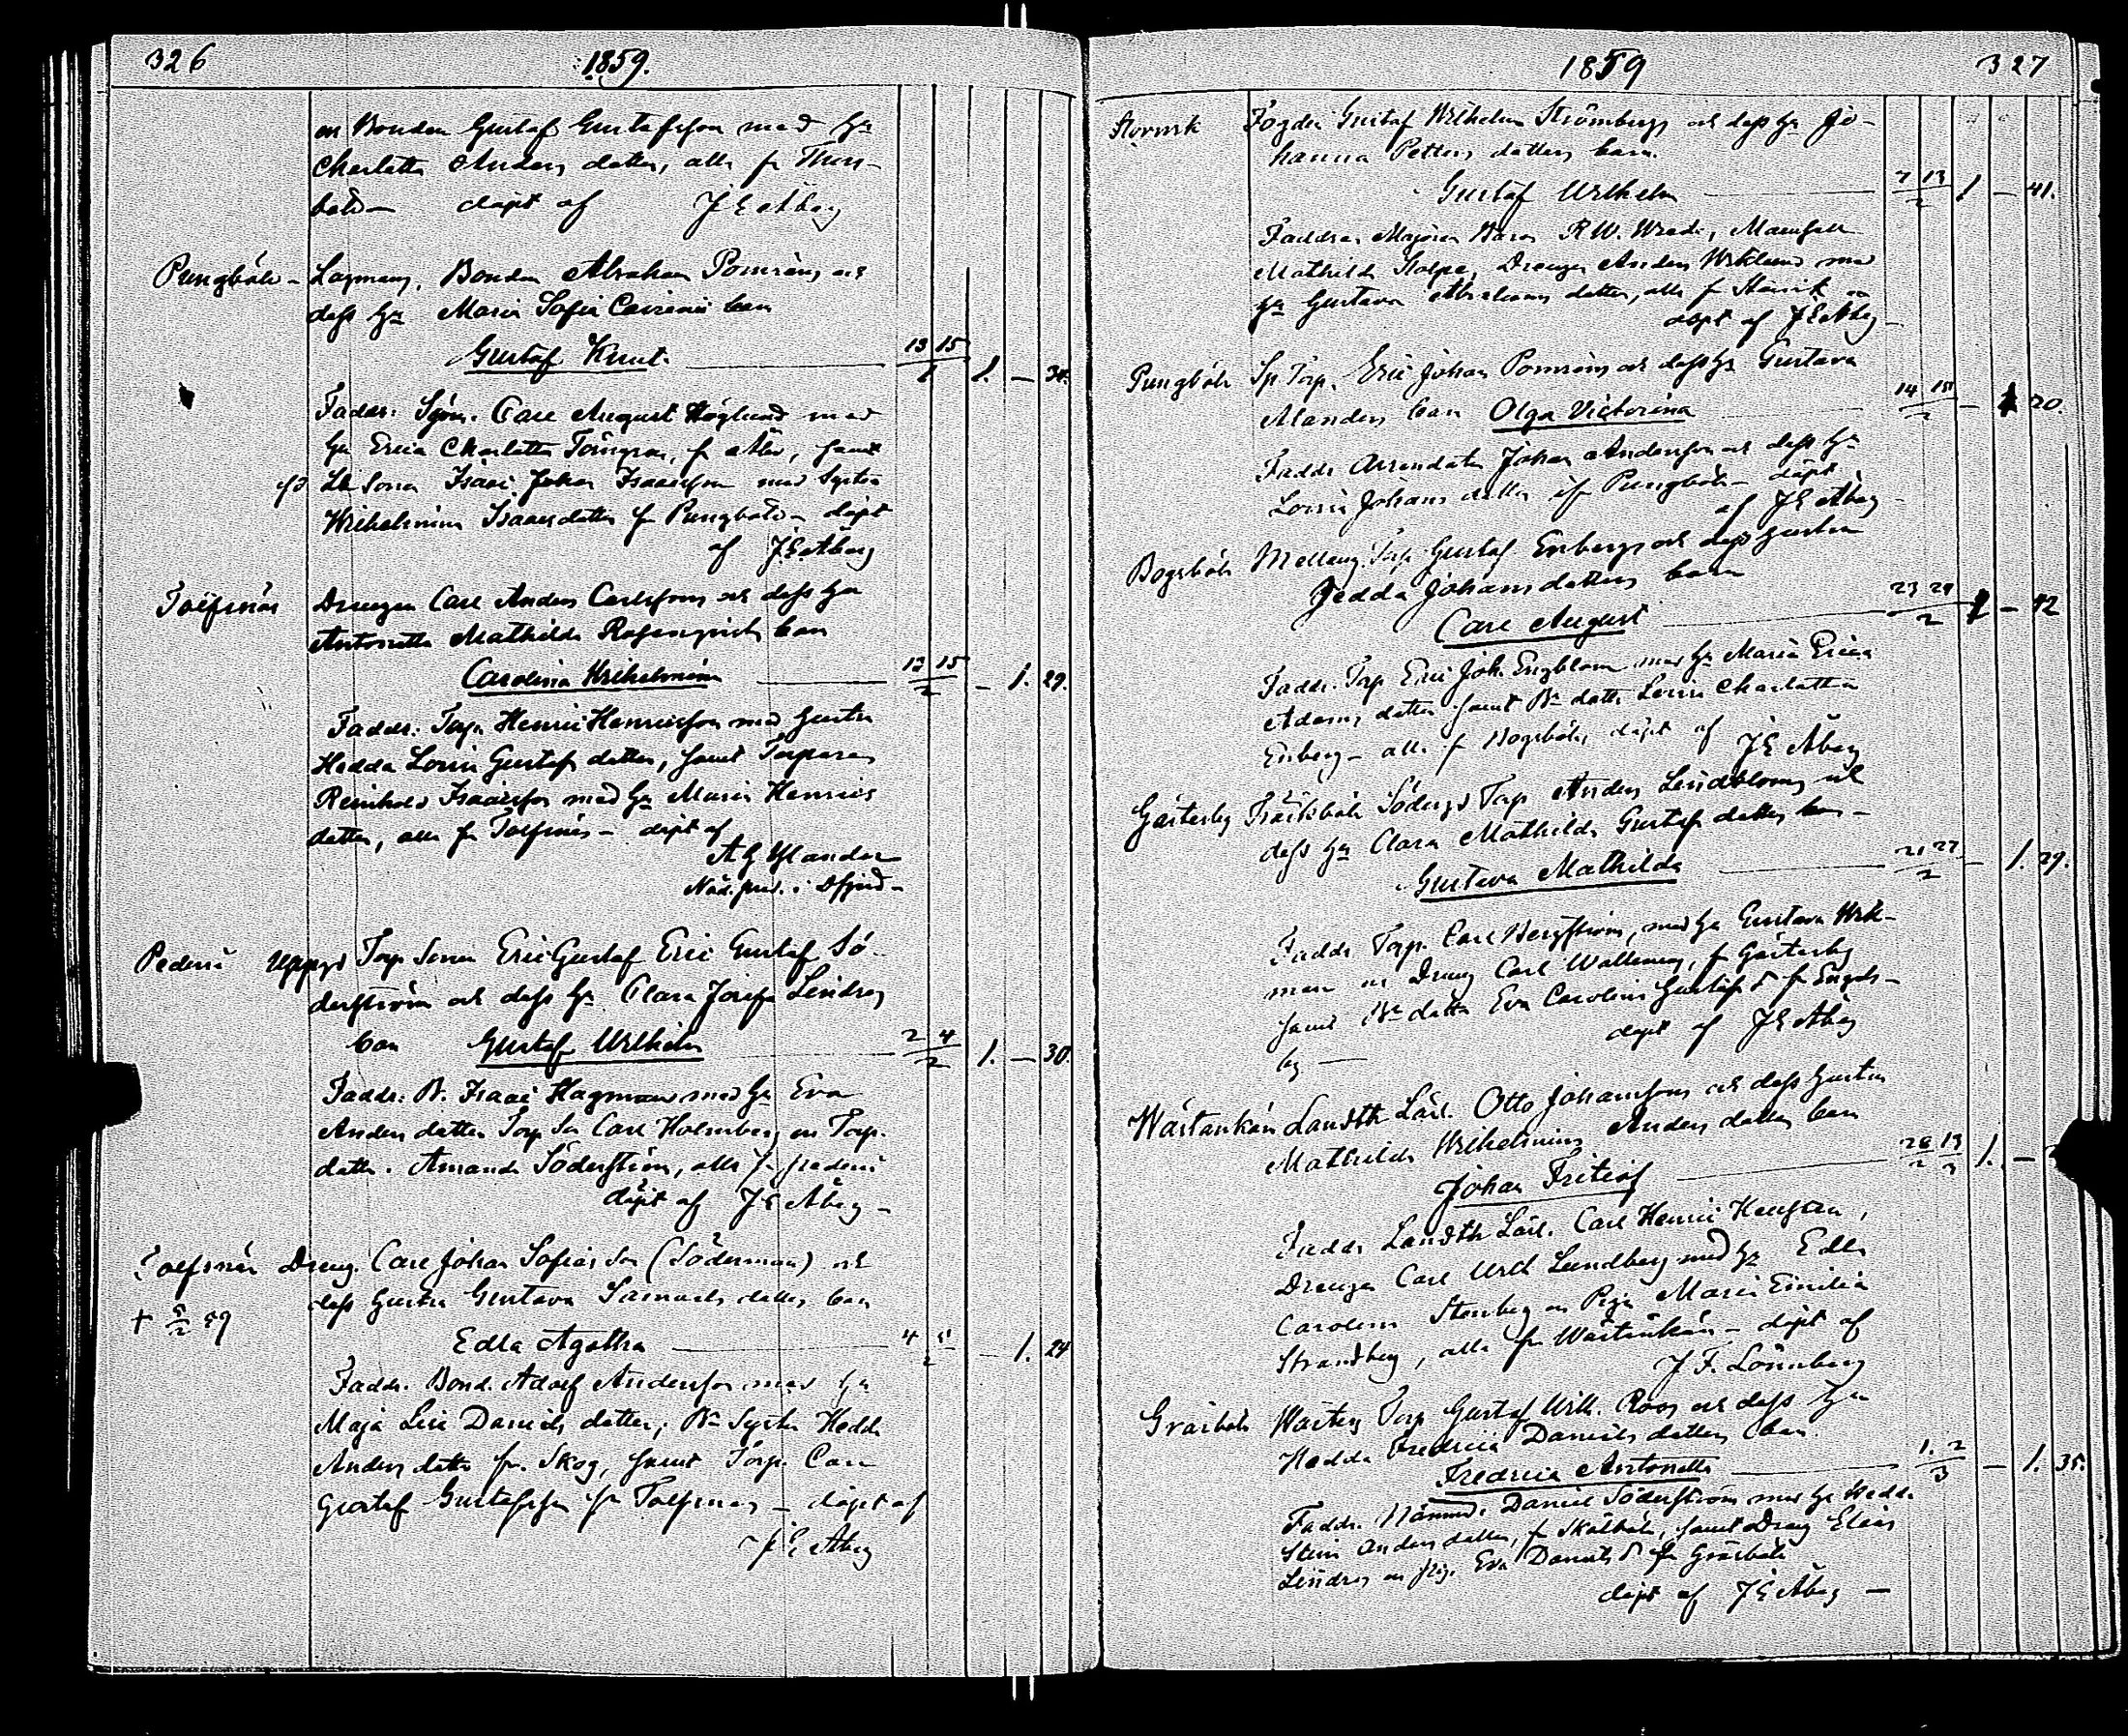 326
1859.
en Bonden Gustaf Gustafsson med H:u
Charlotta Anders dotter, alla fr Thors-
böle - döpt af J E Åberg
Pungböle - Lagmans, Bonden Abraham Pomrèns och
dess H:u Maria Sofia barn
Gustaf Knut. 13 15 / 1. — 34.
Faddr: Sjöm. Carl August Höglund med
H:u Erica Charlotta Törngren, f samt
Isaac Johan Isaacsson med Syster
Wilhelmina Isaacsdotter fr Pungböle - döpt
af J E Åberg
Tolfsnäs Drengen Carl Anders Carlssons och dess H:u
Antonetta Mathilda Rosenqvists barn
Carolina Wilhelmina 12 15 / 2 — 1. 29.
Faddr: Torp. Henric Henricsson med hustru
Hedda Lovisa Gustafs dotter, samt Torparen
Reinhold Isaacsson med H:u Maria Henrics
dotter, alla fr Tolfsnäs - döpt af
A G
i
Pederså Uppgs Torp Sonen Eric Gustaf Eric Gustaf Sö-
derström och dess H:u Clara Josefa Lindros
barn Gustaf Wilhelm 2 4 / 2 1. — 30.
Faddr: B. Isaac Hagman med H:u Eva
Anders dotter Torp Son Carl Holmberg en Torp.
dotter. Amanda Söderström, alla fr Pederså
döpt af J E Åberg -
Tolfsnäs Dreng. Carl Johan Sofias Son (Söderman) och
+ 5/2 59 dess hustru Gustava Samuels dotters barn
Edla Agatha 4 5 / 2 — 1. 24
Faddr. Bond. Adolf Andersson med H:u
Maja Lisa Daniels dotter; Bds Syster Hedda
Anders dotter fr. Skog, samt Torp. Carl
Gustaf Gustafsson fr Tolfsnäs - döpt af
J E Åberg
1859
327
Störvik Fogden Gustaf Wilhelm Strömbergs och dess H:u Jo-
hanna Petters dotters barn.
Gustaf Wilhelm 7 13 / 2 1 — 41.
Faddrar Majoren Baron R W. Wrede, Mamsell
Mathilda Stolpe, Drengen Anders Wiklund med
H:u Gustava Abrahams dotter, alla fr Störvik -
döpt af J E Åberg -
Pungböle Torp. Eric Johan Pomrèns och dess H:u Gustava
Alanders barn Olga Victorina 14 15 / 2 — 1 20.
Faddr Arrendator Johan Andersson och dess H:u
Lovisa Johans dotter fr Pungböle - döpt
af J E Åberg -
Bogsböle Mellang. Torp. Gustaf Enbergs och dess hustru
Hedda Johansdotters barn
Carl August 23 24 / 2 1 — 42
Faddr. Torp Eric Joh. Engblom med H:u Maria Erica
Adams dotter samt Bds dottr Lovisa Charlotta
Enberg - alla fr Bogsböle, döpt af J E Åberg
Gästerby Fräkböle Södergs Torp Anders Lindbloms och
dess H:u Clara Mathilda Gustafs dotters barn -
Gustava Mathilda 21 27 / 2 — 1. 29.
Faddr Torp. Carl Bergström, med H:u Gustava Wik-
man en Dreng Carl Wallenius, fr Gästerby
samt Bds dotter Eva Carolina Gustafs D fr Engs-
by — döpt af J E Åberg
Wästankärr Landtb Lärl. Otto Johanssons och dess hustru
Mathilda Wilhelmina Anders dotters barn
Johan Fritiof 26 13 / 2 3 1. —
Faddr Landtb Lärl. Carl Henric
Drengen Carl Wilh Lundberg med H:u Edla
Carolina Stenberg en Piga Maria Emilia
Strandberg, alla fr Wästankärr - döpt af
J. F. Lönnberg
Gräsböle Wästergs Torp Gustaf Wilh. Roos och dess H:u
Hedda Fredrica Daniels dotters barn.
Fredrica Antonetta 1. 2 / 3 — 1. 35.
Faddr. Nämnd. Daniel Söderström med H:u Hedda
Stina Anders dotter, fr Skälböle, samt Dreng Elias
Lindros en pig. Eva Daniels D fr Gräsböle
döpt af J E Åberg —